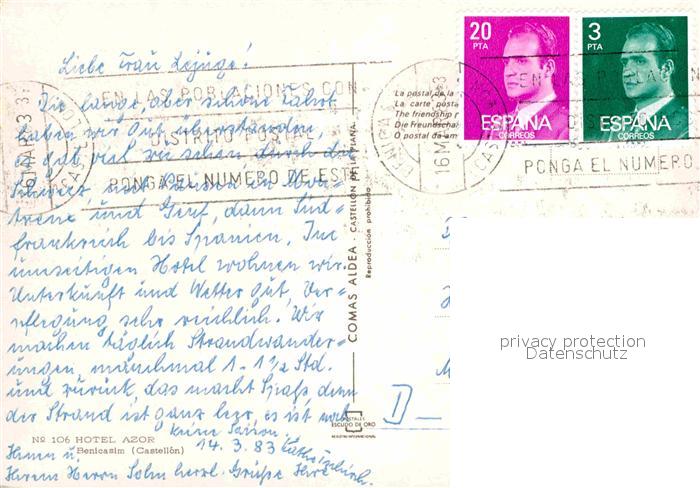 Liebe Frau Lejüge!
Die lange, aber schöne Fahrt
haben wir gut überstanden,
gab viel zu sehen durch die
Schweiz, mit Pausen in Mon-
treux und Genf, dann Süd-
frankreich bis Spanien. Im
umseitigen Hotel wohnen wir.
Unterkunft und Wetter gut, Ver-
pflegung sehr reichlich. Wir
machen täglich Strandwander-
ungen, manchmal 1 - 1 1/2 Std.
und zurück, das macht Spaß, denn
der Strand ist ganz leer, es ist noch
keine Saison.
14.3.83
Ihnen u.
Ihrem Herrn Sohn herzl. Grüße Ihre
Nº 106 HOTEL AZOR
Benicasim (Castellón)
EN LAS POBLACIONES CON
DISTRITO
PONGA EL NUMERO DE ESTE
16 MAR 83
COMAS ALDEA - CASTELLÓN DE LA PLANA
Reproducción prohibida
POSTALES
ESCUDO DE ORO
La postal de la
La carte posta
The friendship
Die Freundschaf
O postal da am
20
PTA
ESPAÑA
CORREOS
3
PTA
ESPAÑA
CORREOS
16 MAR 83
PONGA EL NUMERO
D
privacy protection
Datenschutz